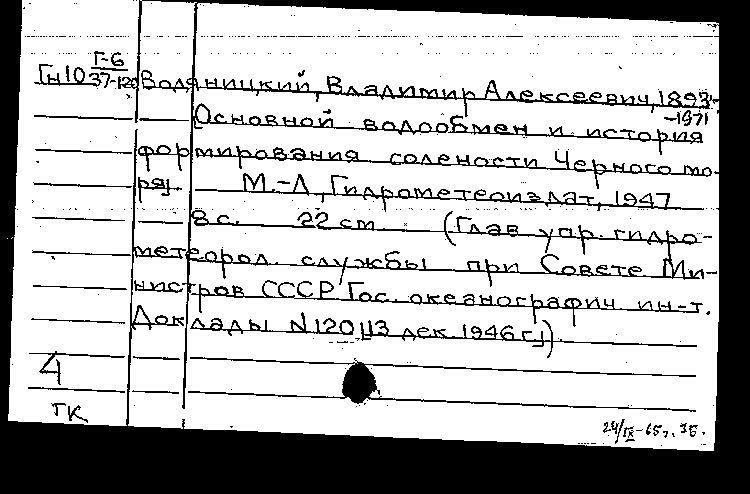 Г-6
Гн10 37-120 Водяницкий, Владимир Алексеевич, 1893-
-1971
[Основной водообмен и история
формирования солености Черного мо-
ря]. М.-Л, Гидрометеоиздат, 1947
8 с. 22 cm. (Глав упр. гидро-
метеорол. службы при Совете Ми-
нистров СССР Гос. океанографич ин-т.
Доклады N120 [13 дек. 1946 г.])
4
ГК
24/IX-65г.